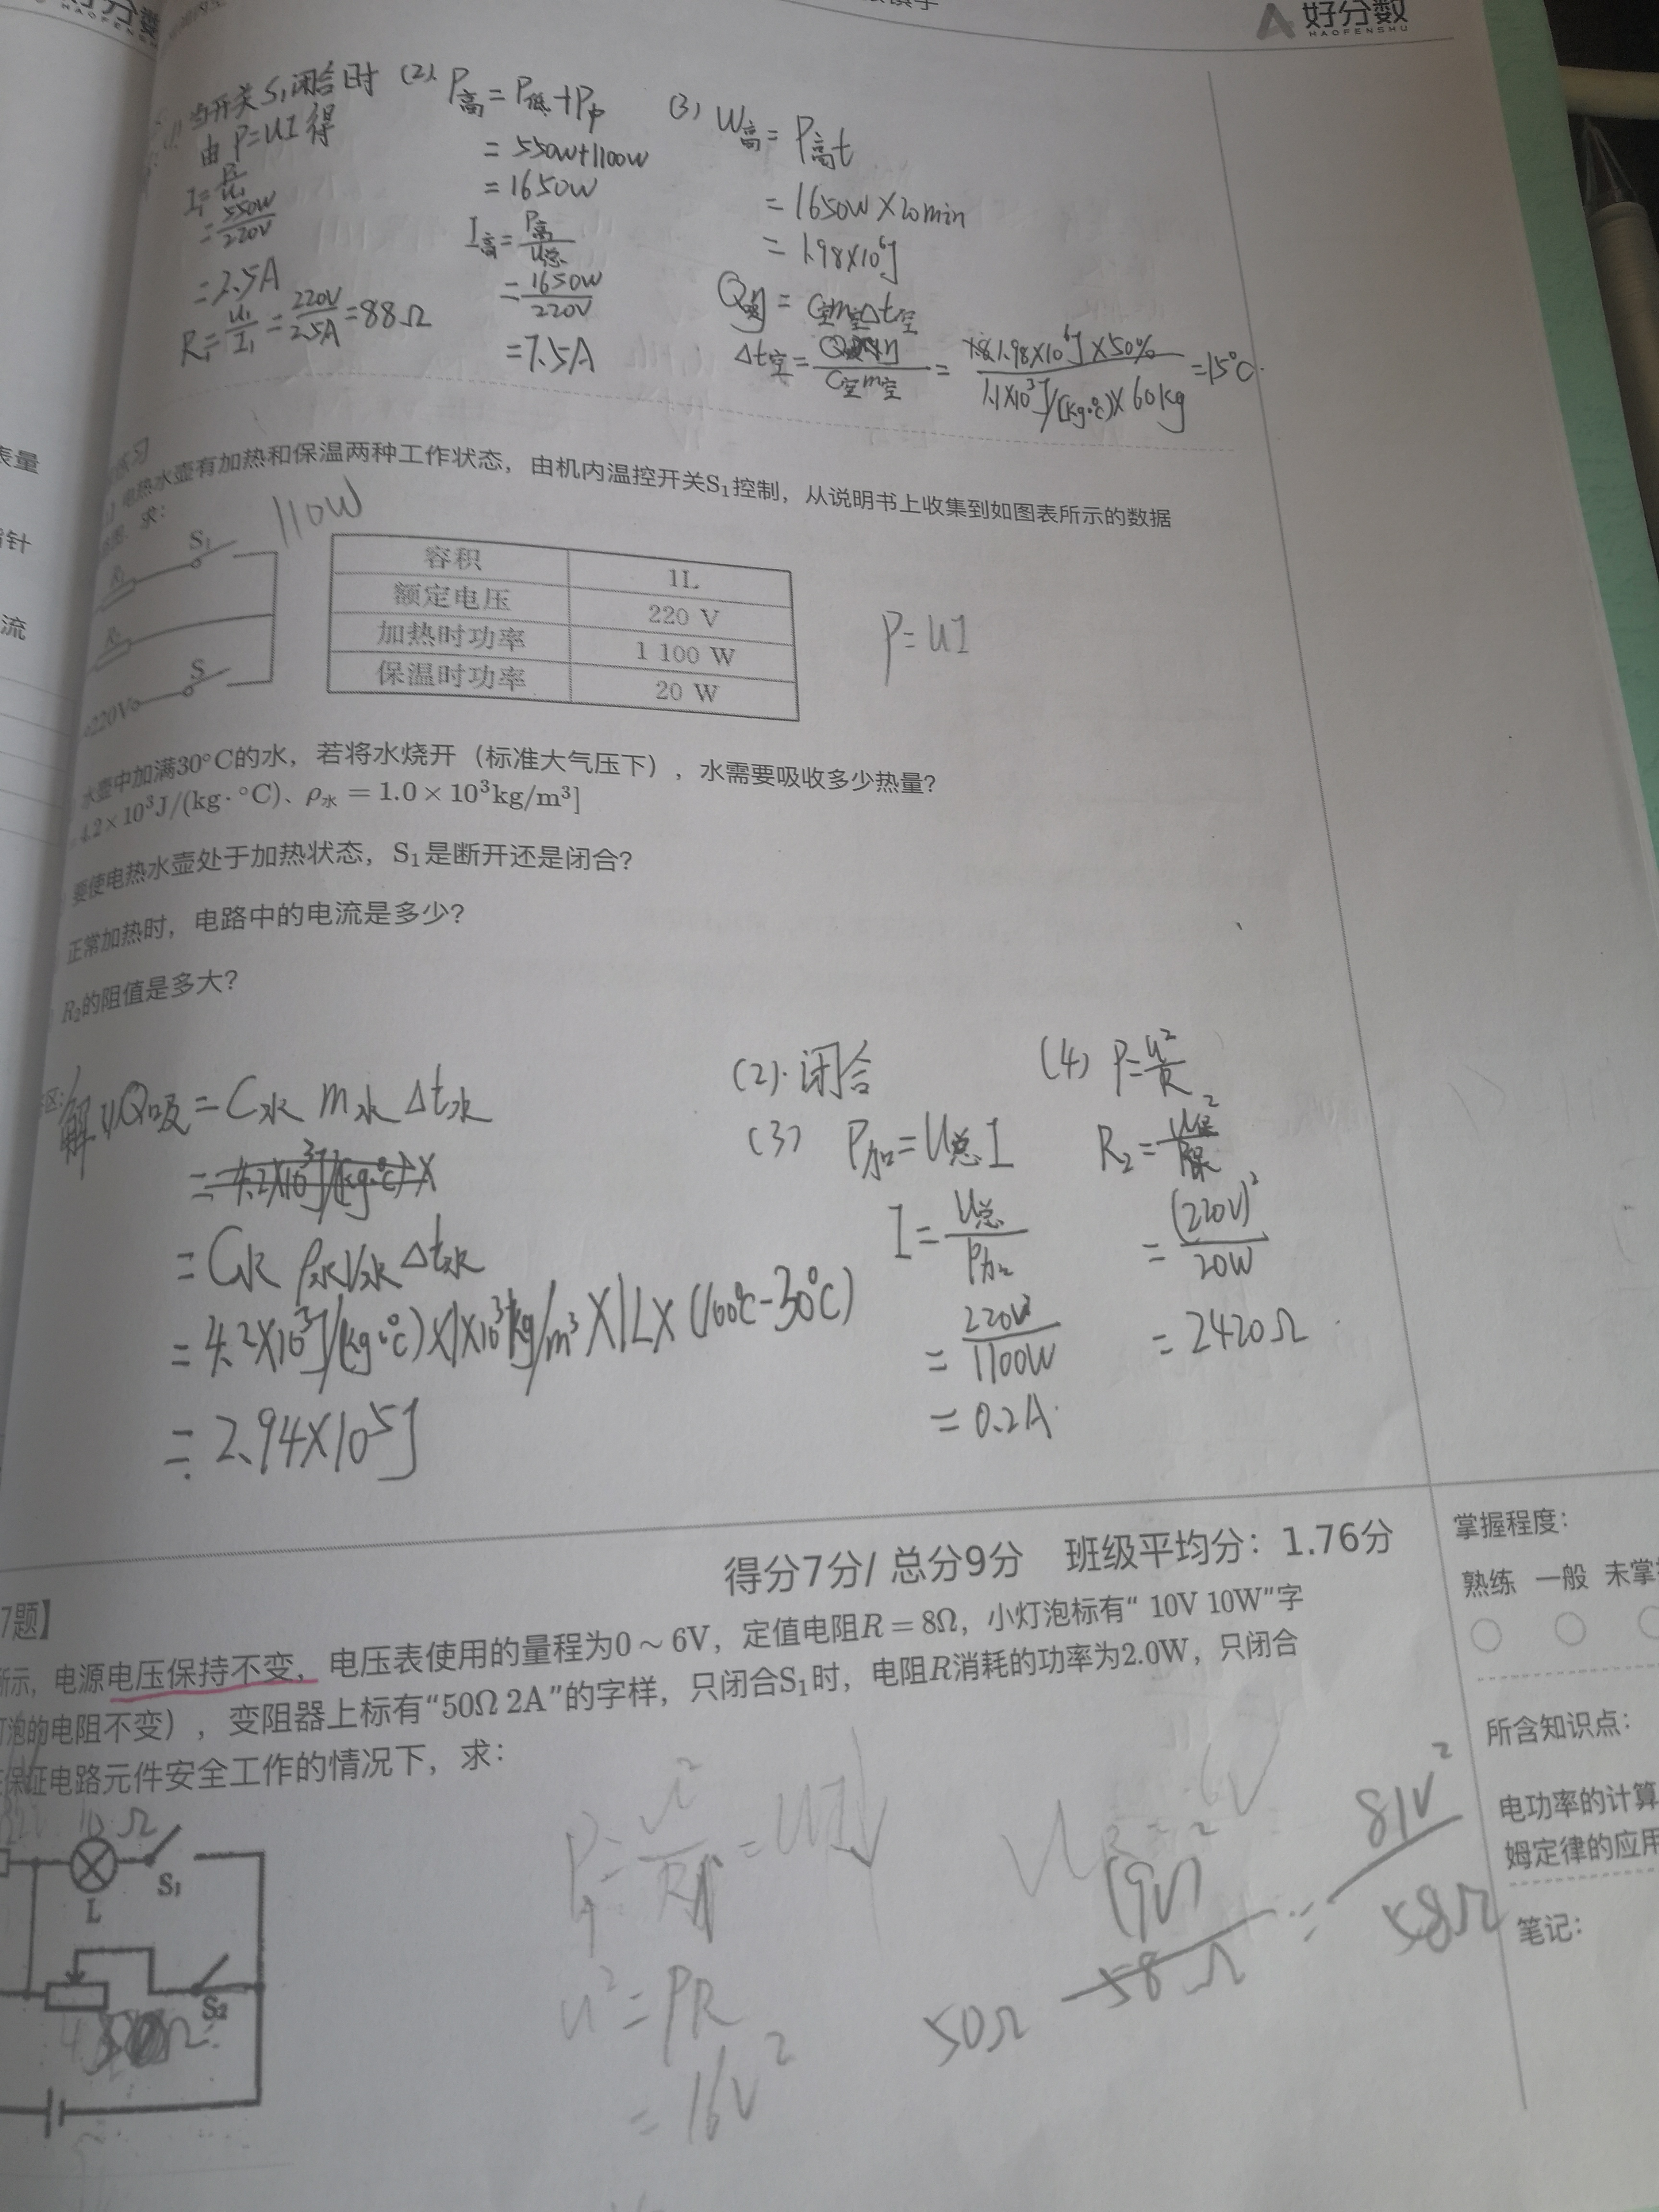 好分数
HAOFENSHU
当开关S₁闭合时
由P=UI得
I₁=P₁/U₁
=550W/220V
=2.5A
R₁=U₁/I₁=220V/2.5A=88Ω
(2) P高=P低+P中
=550W+1100W
=1650W
I高=P高/U总
=1650W/220V
=7.5A
(3) W高=P高t
=1650W×20min
=1.98×10⁶J
Q吸=C空m空Δt空
Δt空= /C空m空=1.98×10⁶J×50%/1.1×10³J/(kg·℃)×60kg=15℃
练习
电热水壶有加热和保温两种工作状态，由机内温控开关S₁控制，从说明书上收集到如图表所示的数据
求：
110W
S₁
R₁
R₂
S
220V
容积 1L
额定电压 220 V
加热时功率 1 100 W
保温时功率 20 W
P=UI
水壶中加满30°C的水，若将水烧开（标准大气压下），水需要吸收多少热量？
4.2×10³J/(kg·°C)、ρ水=1.0×10³kg/m³]
要使电热水壶处于加热状态，S₁是断开还是闭合？
正常加热时，电路中的电流是多少？
R₂的阻值是多大？
解(1)Q吸=C水m水Δt水
=4.2×10³J/(kg·℃)×
=C水ρ水V水Δt水
=4.2×10³J/(kg·℃)×1×10³kg/m³×1L×(100℃-30℃)
=2.94×10⁵J
(2).闭合
(3) P加=U总I
I=U总/P加
=220V/1100W
=0.2A.
(4) P=U²/R
R₂=U保²/P保
=(220V)²/20W
=2420Ω
得分7分/ 总分9分 班级平均分：1.76分
7题】
所示，电源电压保持不变，电压表使用的量程为0～6V，定值电阻R=8Ω，小灯泡标有“ 10V 10W”字
灯泡的电阻不变），变阻器上标有“50Ω 2A”的字样，只闭合S₁时，电阻R消耗的功率为2.0W，只闭合
保证电路元件安全工作的情况下，求：
10Ω
L
S₁
S₂
P=U²/R=UI
U²=PR
=16V²
6V
(9V)²/58Ω=81V²/58Ω
50Ω
掌握程度：
熟练 一般 未掌
所含知识点：
电功率的计算
姆定律的应用
笔记：